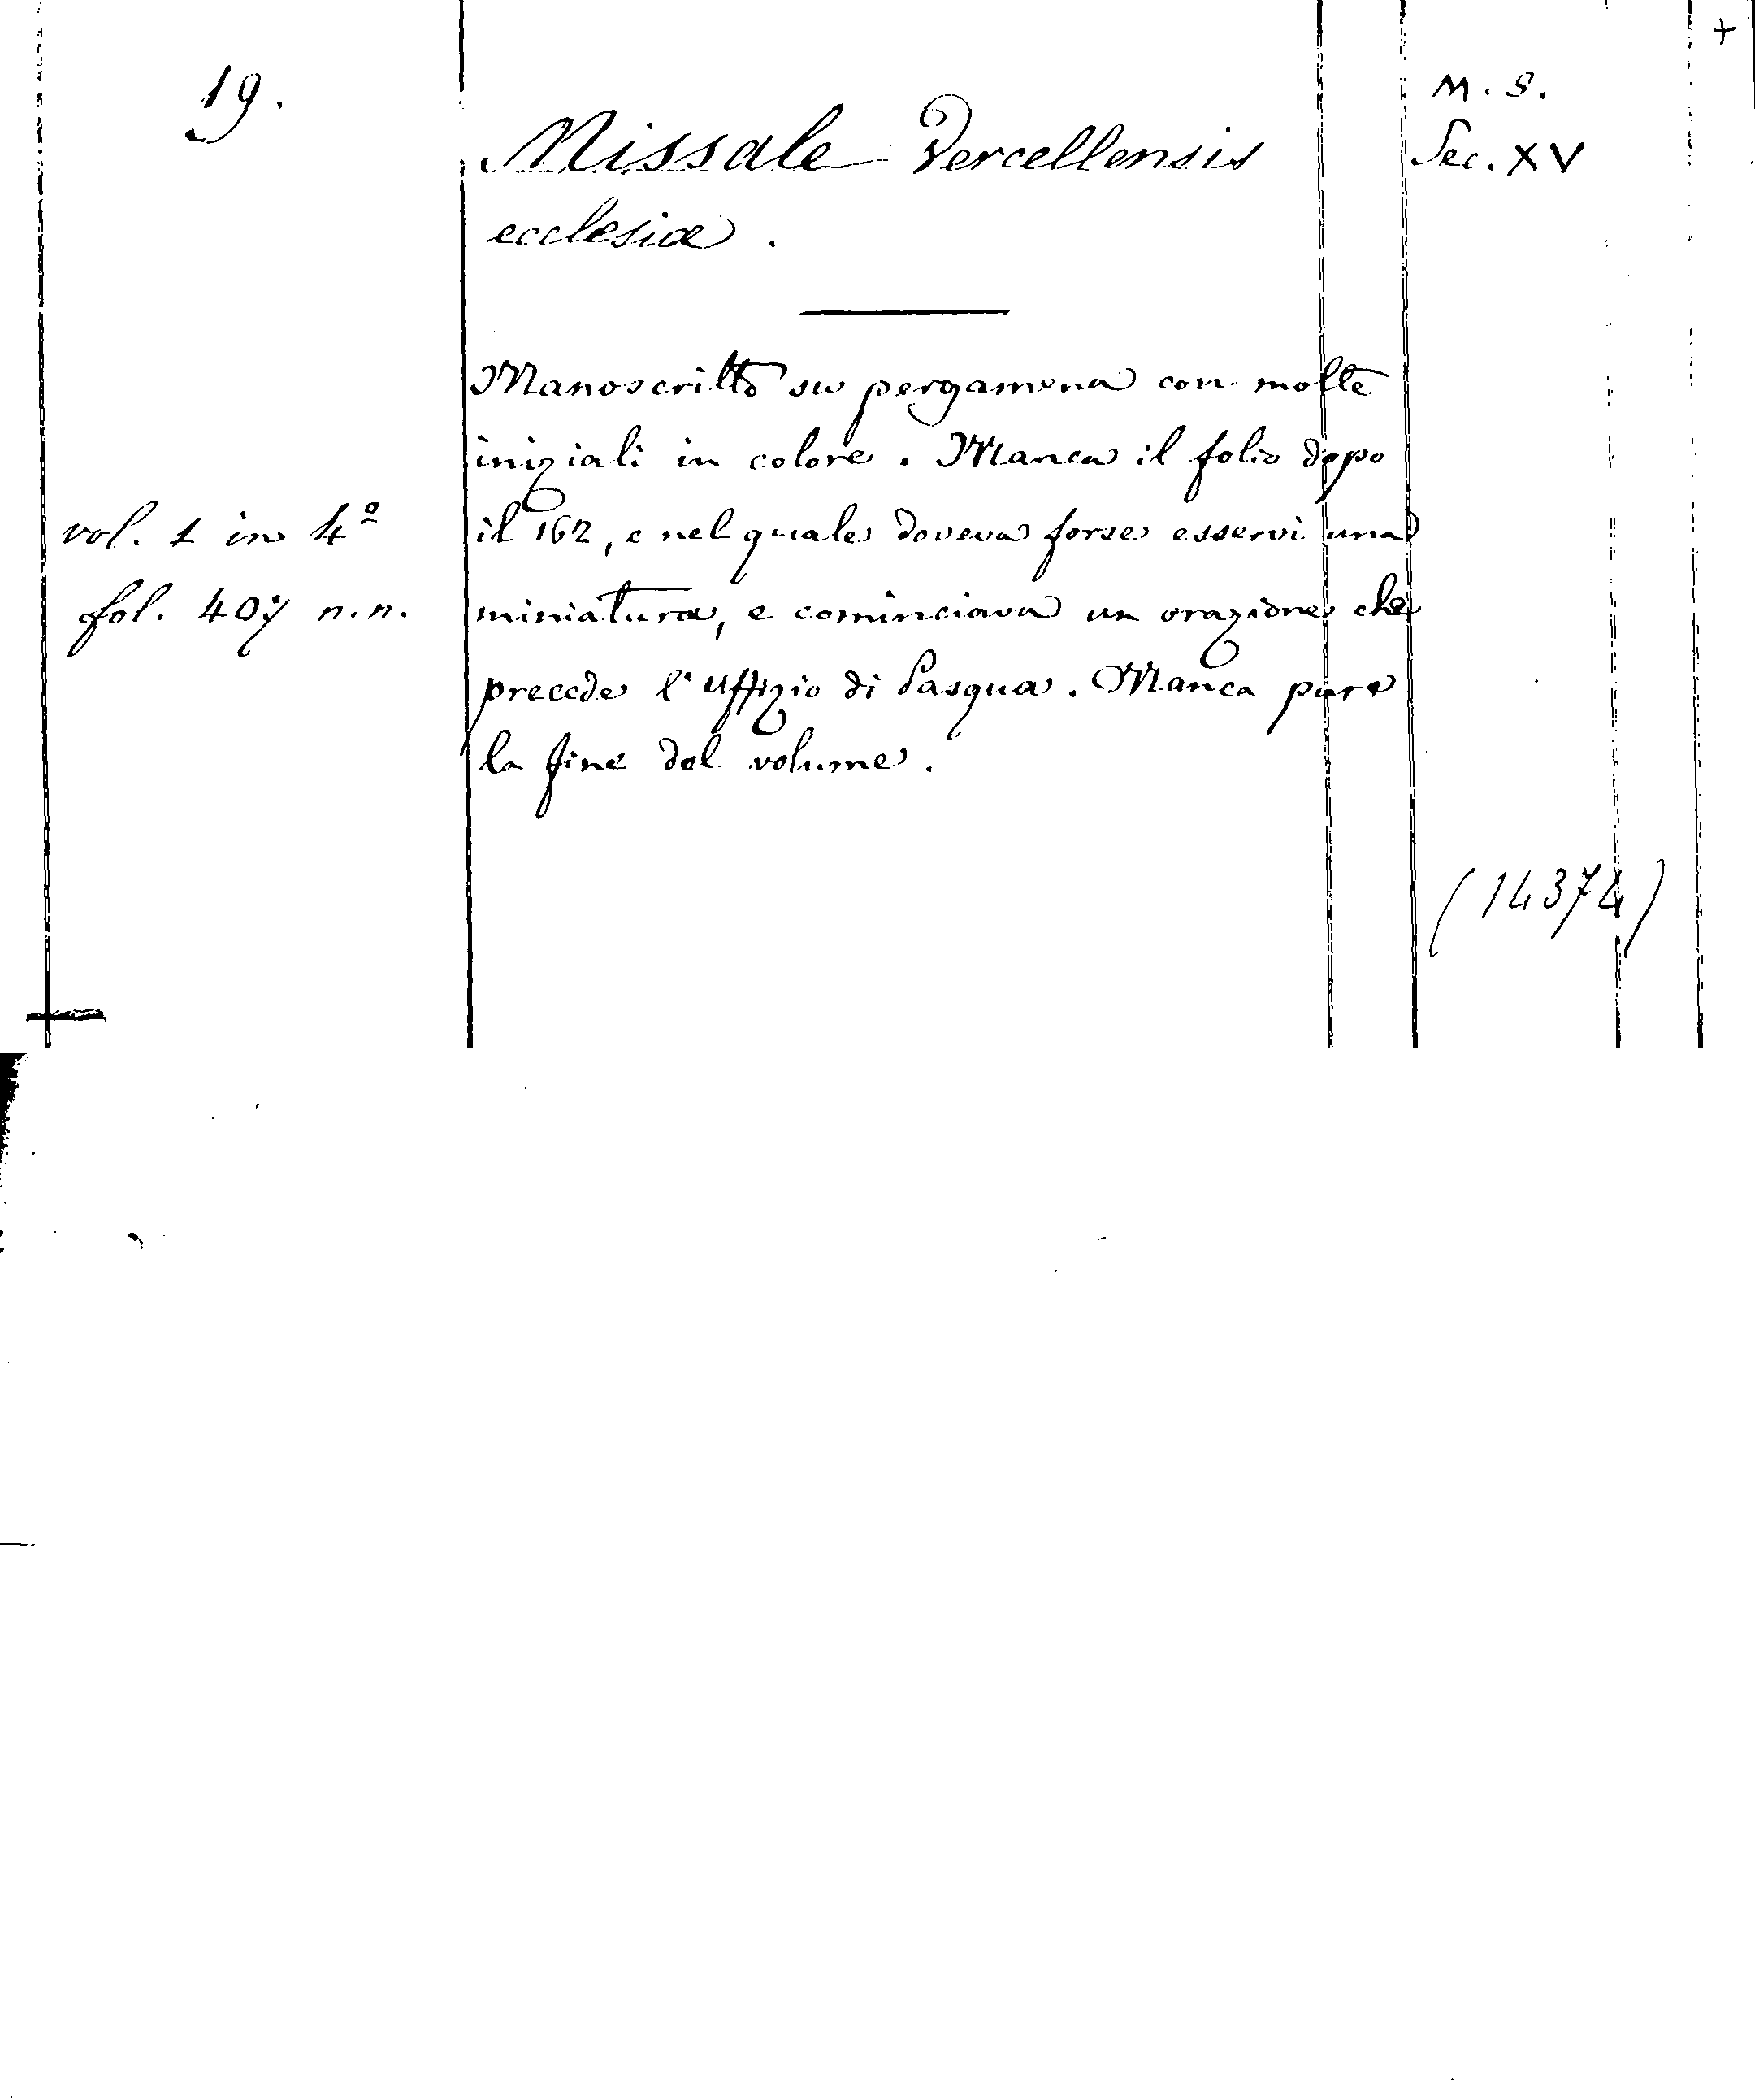 +
19.
M. S.
Sec. XV
Missale Vercellensis
ecclesiæ.
Manoscritto su pergamena con molte
iniziali in colore. Manca il folio dopo
il 162, e nel quale doveva forse esservi una
miniatura, e cominciava un orazione che
precede l'Uffizio di Pasqua. Manca pure
la fine del volume.
vol. 1 in 4º
fol. 407 n.n.
(14374)